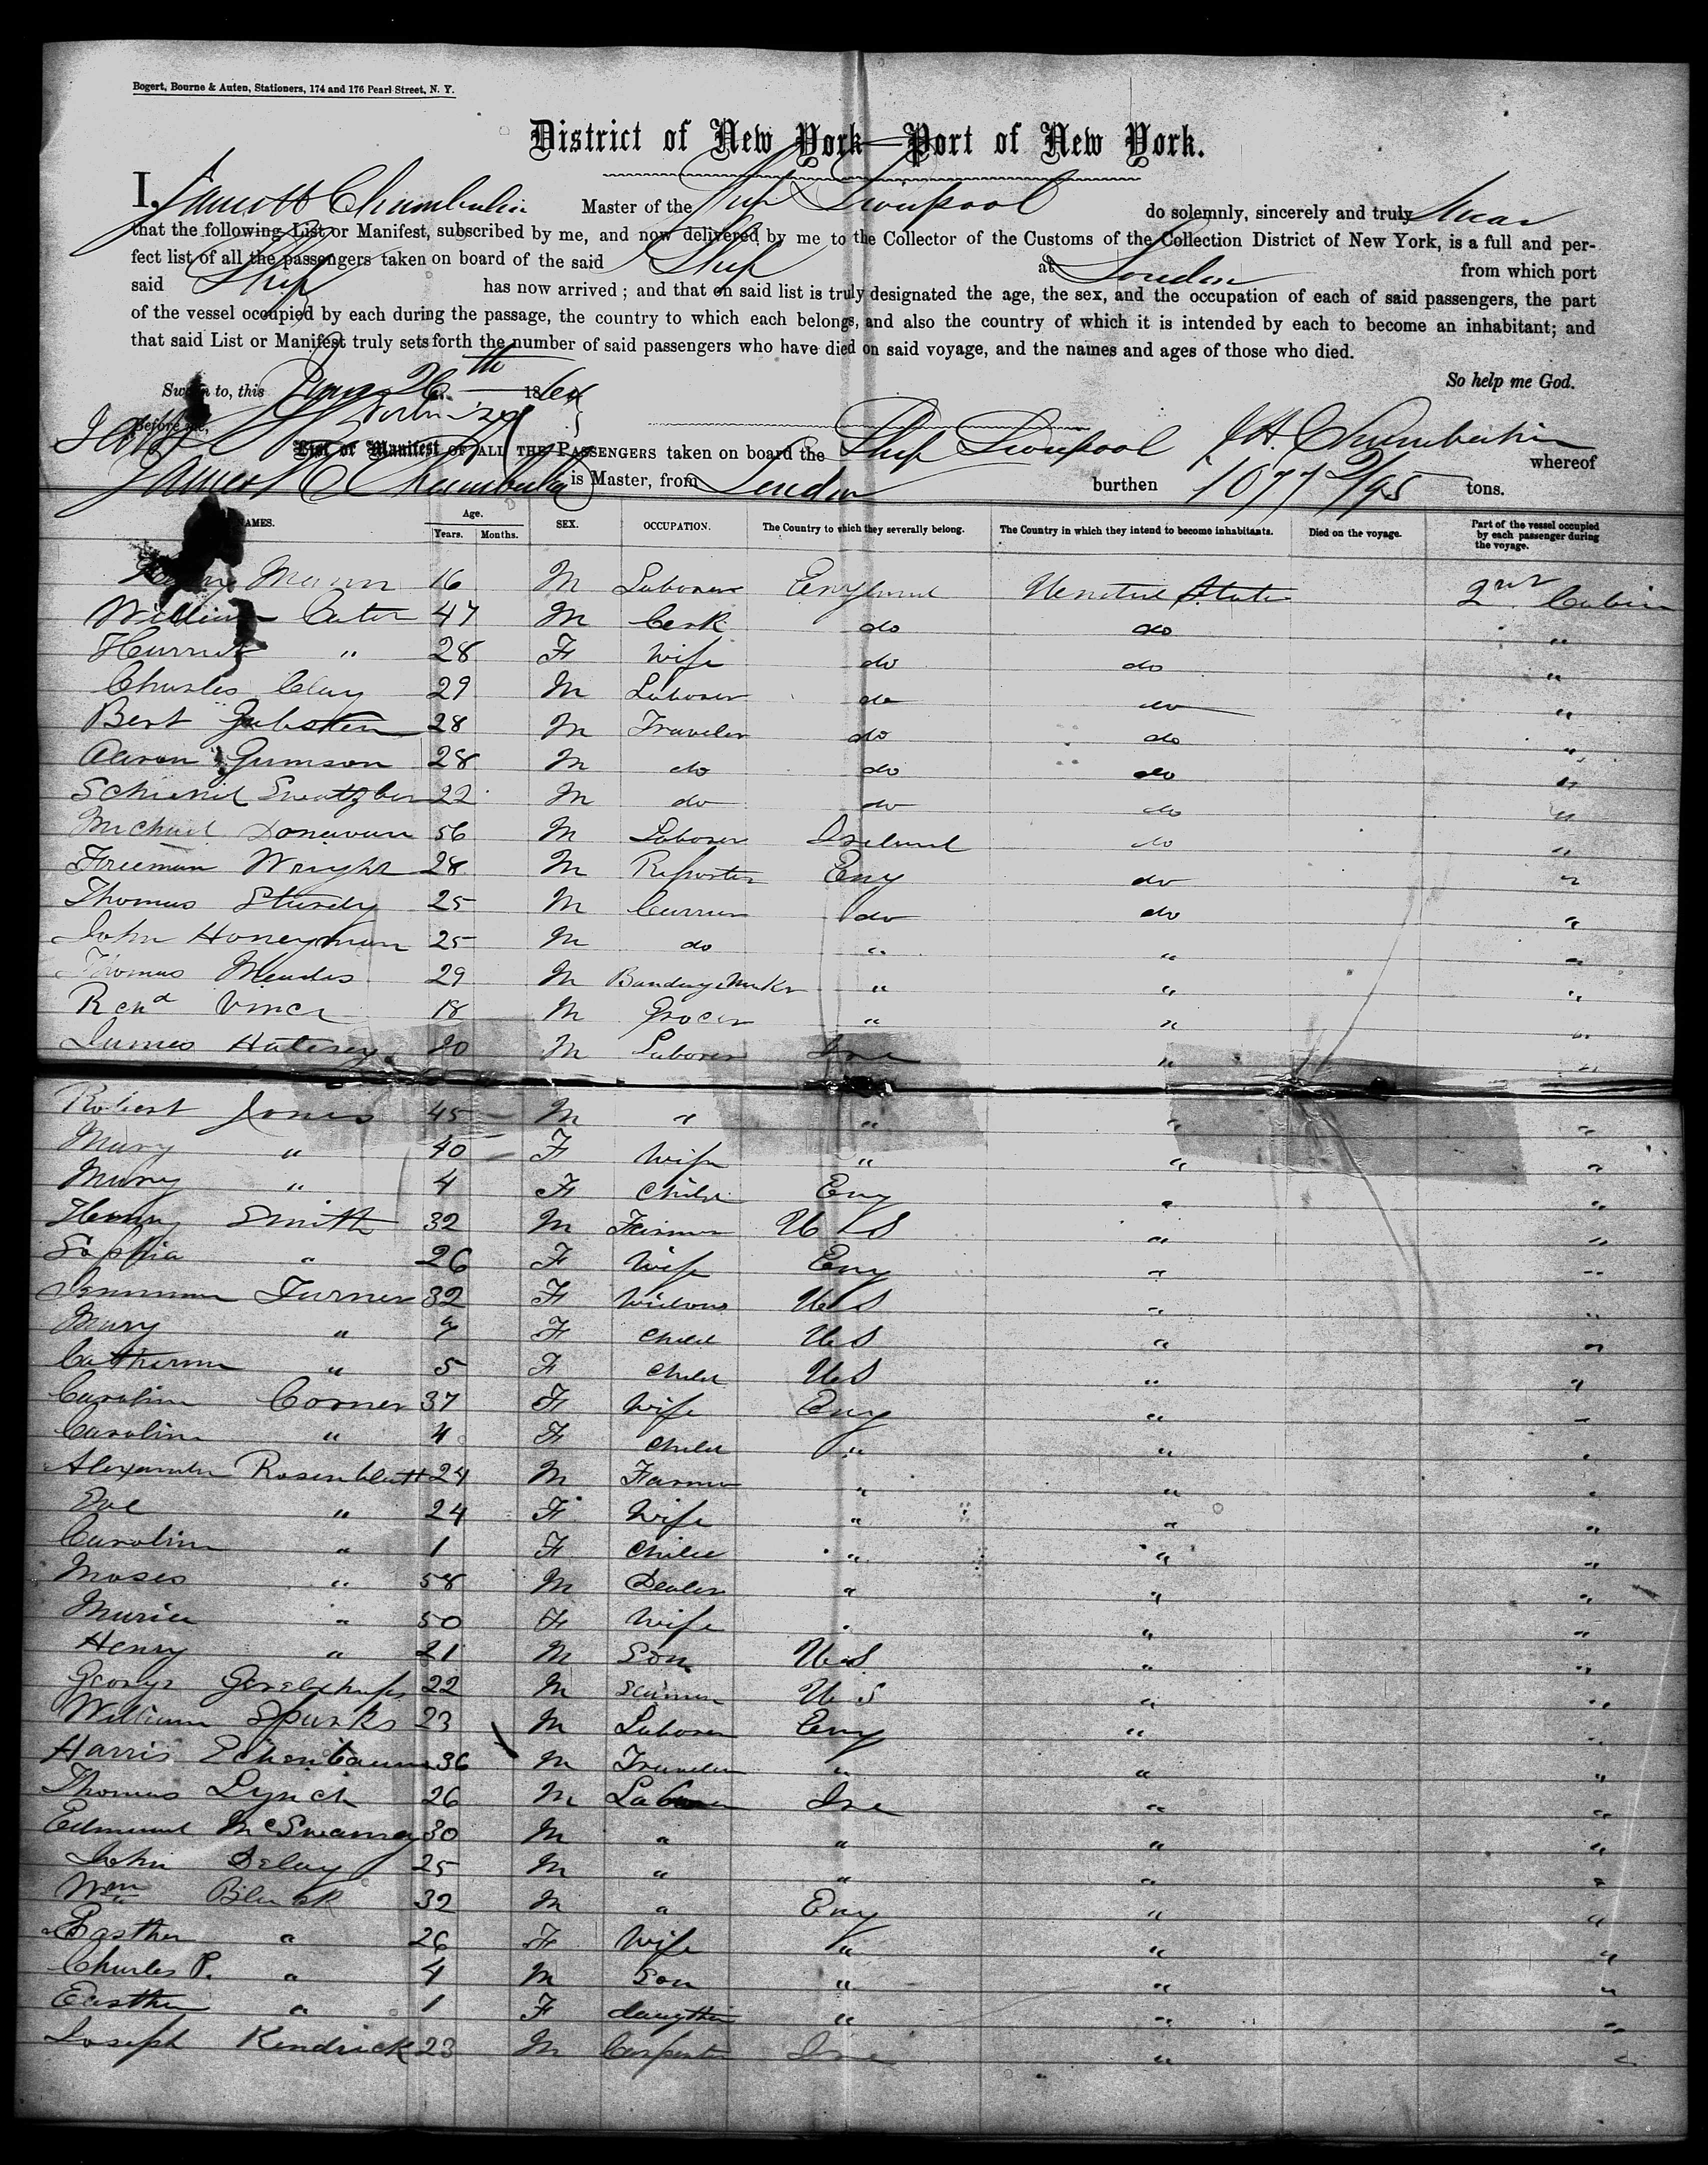 Bogert, Bourne & Auten, Stationers, 174 and 176 Pearl Street, N. Y.
District of New York—Port of New York.
I, James H Chamberlin Master of the Ship Liverpool do solemnly, sincerely and truly swear
that the following List or Manifest, subscribed by me, and now delivered by me to the Collector of the Customs of the Collection District of New York, is a full and per-
fect list of all the passengers taken on board of the said Ship at London from which port
said Ship has now arrived; and that on said list is truly designated the age, the sex, and the occupation of each of said passengers, the part
of the vessel occupied by each during the passage, the country to which each belongs, and also the country of which it is intended by each to become an inhabitant; and
that said List or Manifest truly sets forth the number of said passengers who have died on said voyage, and the names and ages of those who died.
So help me God.
Sworn to, this 26th 1864
Before me, J H Chamberlin
List or Manifest OF ALL THE PASSENGERS taken on board the Ship Liverpool whereof
James H Chamberlin is Master, from London burthen 1077 2/95 tons.
NAMES. Age. Years. Months. SEX. OCCUPATION. The Country to which they severally belong. The Country in which they intend to become inhabitants. Died on the voyage. Part of the vessel occupied by each passenger during the voyage.
Mann 16 M Laborer England United States 2nd Cabin
William Cater 47 M Clerk do do "
Harriet " 28 F Wife do do "
Charles Clay 29 M Laborer do do "
Bert 28 M Traveler do do "
Aaron Gumson 28 M do do do "
22 M do do do "
Michael Donavan 56 M Laborer Ireland do "
Freeman Wright 28 M Reporter Eng do "
Thomas Sturdy 25 M do do "
John Honeyman 25 M do " " "
Thomas Meades 29 M Bandage Maker " " "
Rchd Vince 18 M Grocer " " "
James 20 M Laborer Ire " "
Robert Jones 45 M " " " "
Mary " 40 F Wife " " "
Mary " 4 F Child Eng " "
Henry Smith 32 M Farmer U S " "
Sophia " 26 F Wife Eng " "
Turner 32 F Widow U S " "
Mary " 7 F Child U S " "
Catherine " 5 F Child U S " "
Caroline Corner 37 F Wife Eng " "
Caroline " 4 F Child " " "
Alexander Rosenblatt 24 M Farmer " " "
Eve " 24 F Wife " " "
Caroline " 1 F Child " " "
Moses " 58 M Dealer " " "
Maria " 50 F Wife " " "
Henry " 21 M Son U S " "
George 22 M Seaman U S " "
William Sparks 23 M Laborer Eng " "
Harris Echenbaum 36 M Traveler " " "
Thomas Lynch 26 M Laborer Ire " "
Edmund McSwaney 30 M " " " "
John Delay 25 M " " " "
Wm Black 32 M " Eng " "
Easther " 26 F Wife " " "
Charles P. " 4 M Son " " "
Easther " 1 F daughter " " "
Joseph Kendrick 23 M Carpenter Ire " "